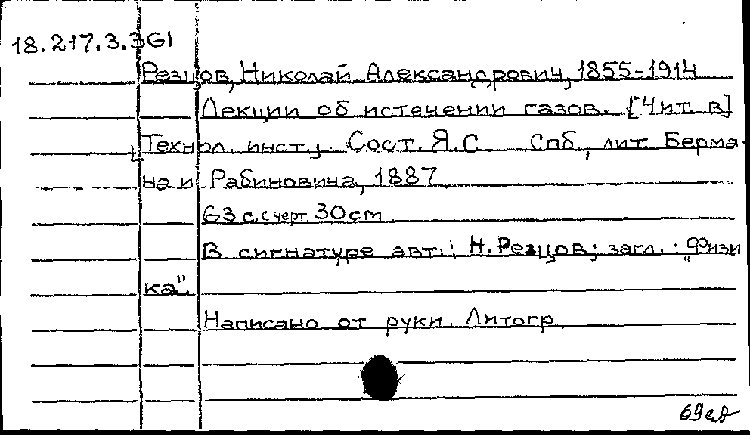 18.217.3.361
Резцов, Николай Александрович, 1855-1914
Лекции об истечении газов. [Чит. в]
Технол. инст]. Сост. Я.С Спб, лит. Берма-
на и Рабиновича, 1887
63 с. с черт. 30 cm
В сигнатуре авт.: Н. Резцов; загл.: "Физи
ка".
Написано от руки. Литогр.